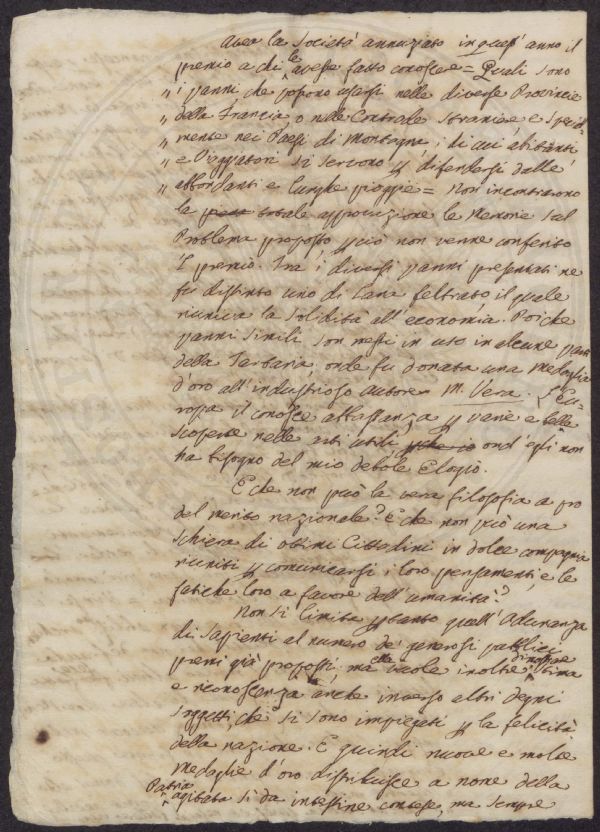 Avea la Società annuziato in quest'anno il
premio a chi le avesse fatto conoscere = Quali sono
" i panni che possono usarsi nelle diverse Provincie
" della Francia, o nelle Contrade straniere e special
" mente nei Paesi di Montagna, i di cui abitanti
" e Viaggiatori si servono p difendersi dalle
" abbondanti e lunghe pioggie = Non incontrarono
la totale approvazione le Memorie sul
Problema proposto, pciò non venne conferito
il premio. Tra i diversi panni presentati ne
fu distinto uno di Lana feltrato il quale
riuniva la solidità all'economia. Poiche
panni simili son messi in uso in alcune parti
della Tartaria, onde fu donata una Medaglia
d'oro all'industrioso autore M. Vera. L'Eu=
ropa il conosce abbastanza p varie e belle
scoperte nelle arti utili, ond'egli non
ha bisogno del mio debole Elogio.
E che non può la vera filosofia a pro
del merito nazionale? E che non può una
schiera di ottimi Cittadini in dolce compagnia
riuniti p comunicarsi i loro pensamenti, e le
fatiche loro a favore dell'umanità?
Non si limita ptanto quell'Adunanza
di Sapienti al numero de' generosi pubblici
premi già proposti, ma ella vuole inoltre dimostrare stima
e riconoscenza anche inverso altri degni
soggetti, che si sono impiegati p la felicità
della nazione. E quindi nuove e molte
Medaglie d'oro distribuisce a nome della
Patria agitata sì da intestine contese, ma sempre